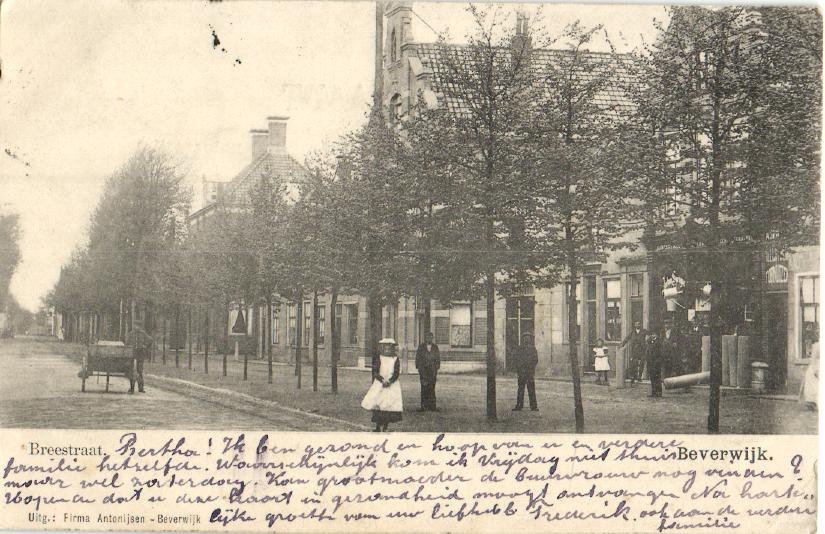 Breestraat. Bertha! Ik ben gezond en hoop van u en verdere Beverwijk.
familie hetzelfde. Waarschijnlijk kom ik Vrijdag niet thuis
maar wel zaterdag. Kon grootmoeder de buurvrouw nog vinden?
Hopende dat u deze kaart in gezondheid moogt ontvangen Na harte-
Uitg.: Firma Antonijsen - Beverwijk lijke groette van uw liefhebb Frederik. ook aan de verdere
familie